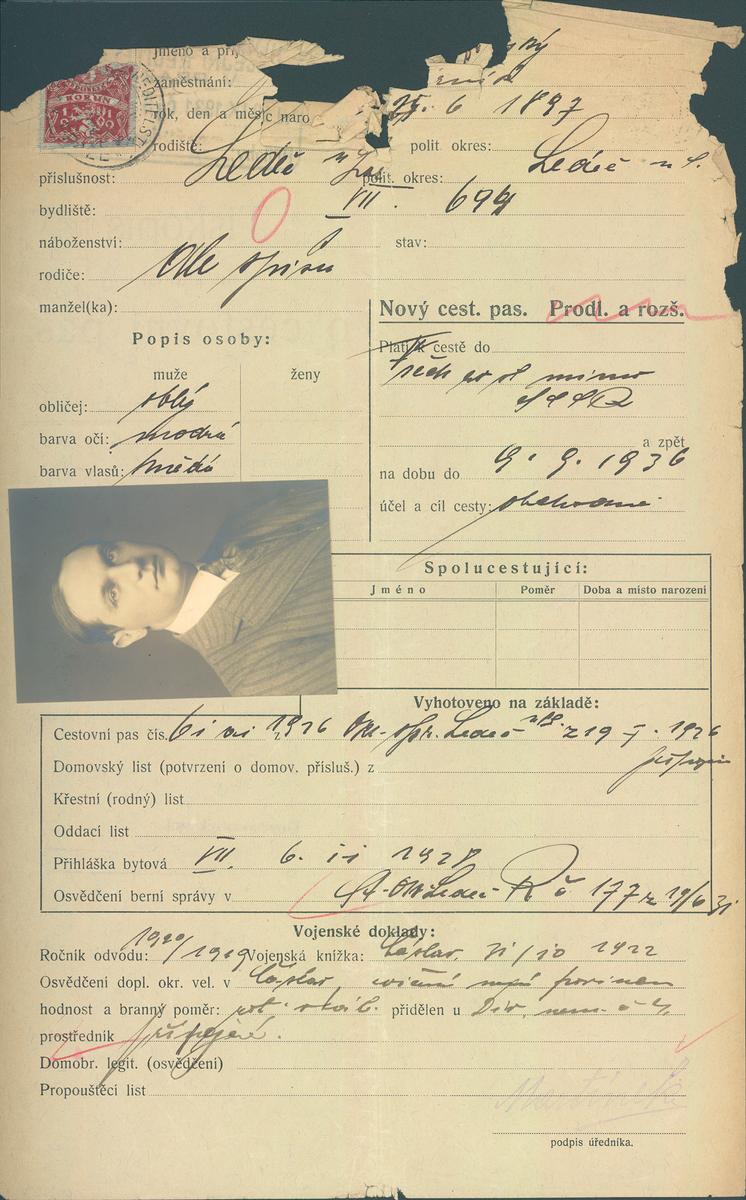 Jméno a
zaměstnání:
rok, den a měsíc naro 25. 6 1897
KORUN
rodiště: Ledeč n polit. okres: Ledeč n. S.
příslušnost: polit. okres:
bydliště: VII. 694
náboženství: stav:
rodiče: dle spisu
manžel(ka):
Nový cest. pas. Prodl. a rozš.
Popis osoby:
muže ženy
obličej: oblý
barva očí: modrá
barva vlasů: hnědá
Platí k cestě do
všech mimo
SSSR
a zpět
na dobu do 9. 9. 1936
účel a cíl cesty: obchodní
Spolucestující:
Jméno Poměr Doba a místo narození
Vyhotoveno na základě:
Cestovní pas čís. 1926 Okr. spr. Ledeč n/S. z 19 1926
Domovský list (potvrzení o domov. přísluš.) z
Křestní (rodný) list
Oddací list
Přihláška bytová VII. 6. 11 1928
Osvědčení berní správy v Ledeč č 177 z 19/6 31
Vojenské doklady:
Ročník odvodu: 1920/1919 Vojenská kniha: Čáslav. 31/10 1922
Osvědčení dopl. okr. vel. v Čáslav, cvičení nemá povinen
hodnost a branný poměr: rot. přidělen u Div. nem. č 4.
prostředník
Domobr. legit. (osvědčení)
Propouštěcí list
podpis úředníka.